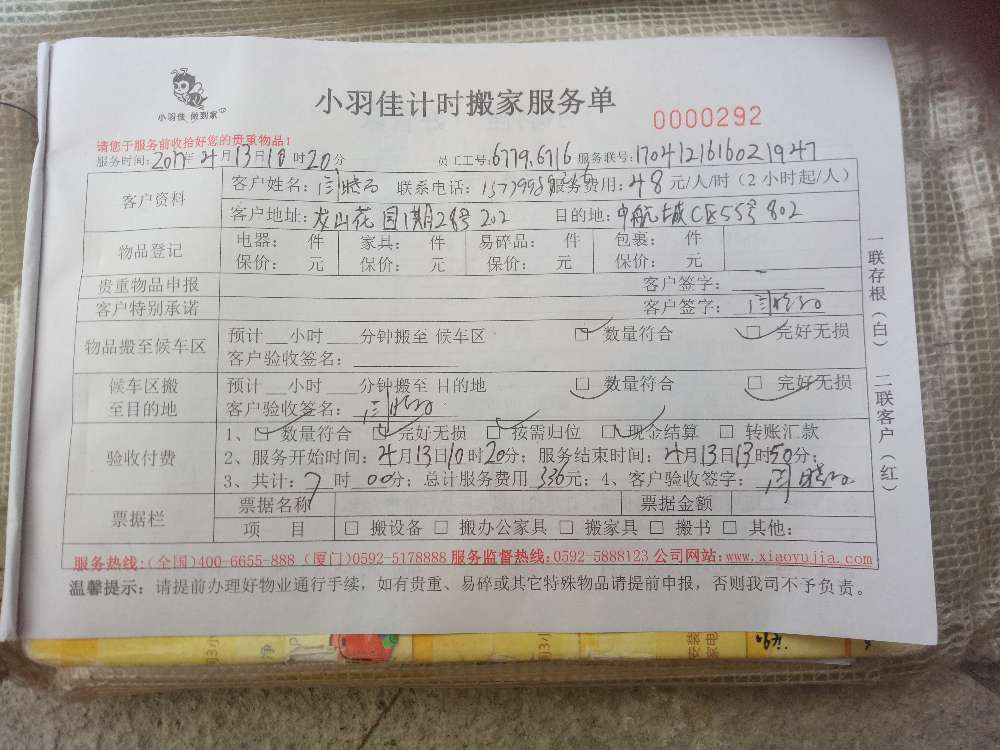 小羽佳 做到家
小羽佳计时搬家服务单
0000292
请您于服务前收拾好您的贵重物品！
服务时间：2017年4月13日10时20分 员工工号：6779.6716 服务联号：1704121616021947
客户资料
客户姓名：闫晓 联系电话： 服务费用：48元/人/时（2小时起/人）
客户地址：龙山花园1期28号202 目的地：中航城C区55号802
物品登记
电器： 件 家具： 件 易碎品： 件 包裹： 件
保价： 元 保价： 元 保价： 元 保价： 元
贵重物品申报 客户签字：
客户特别承诺 客户签字：闫晓
物品搬至候车区
预计__小时___分钟搬至 候车区 数量符合 完好无损
客户验收签名：
候车区搬至目的地
预计__小时___分钟搬至 目的地 数量符合 完好无损
客户验收签名：闫晓
验收付费
1、数量符合 完好无损 按需归位 现金结算 转账汇款
2、服务开始时间：4月13日10时20分；服务结束时间：4月13日13时50分；
3、共计：7时00分；总计服务费用336元；4、客户验收签字：闫晓
票据栏
票据名称 票据金额
项 目 搬设备 搬办公家具 搬家具 搬书 其他：
一联存根（白） 二联客户（红）
服务热线：(全国)400-6655-888 (厦门)0592-5178888 服务监督热线：0592-5888123 公司网站：www.xiaoyujia.com
温馨提示：请提前办理好物业通行手续，如有贵重、易碎或其它特殊物品请提前申报，否则我司不予负责。